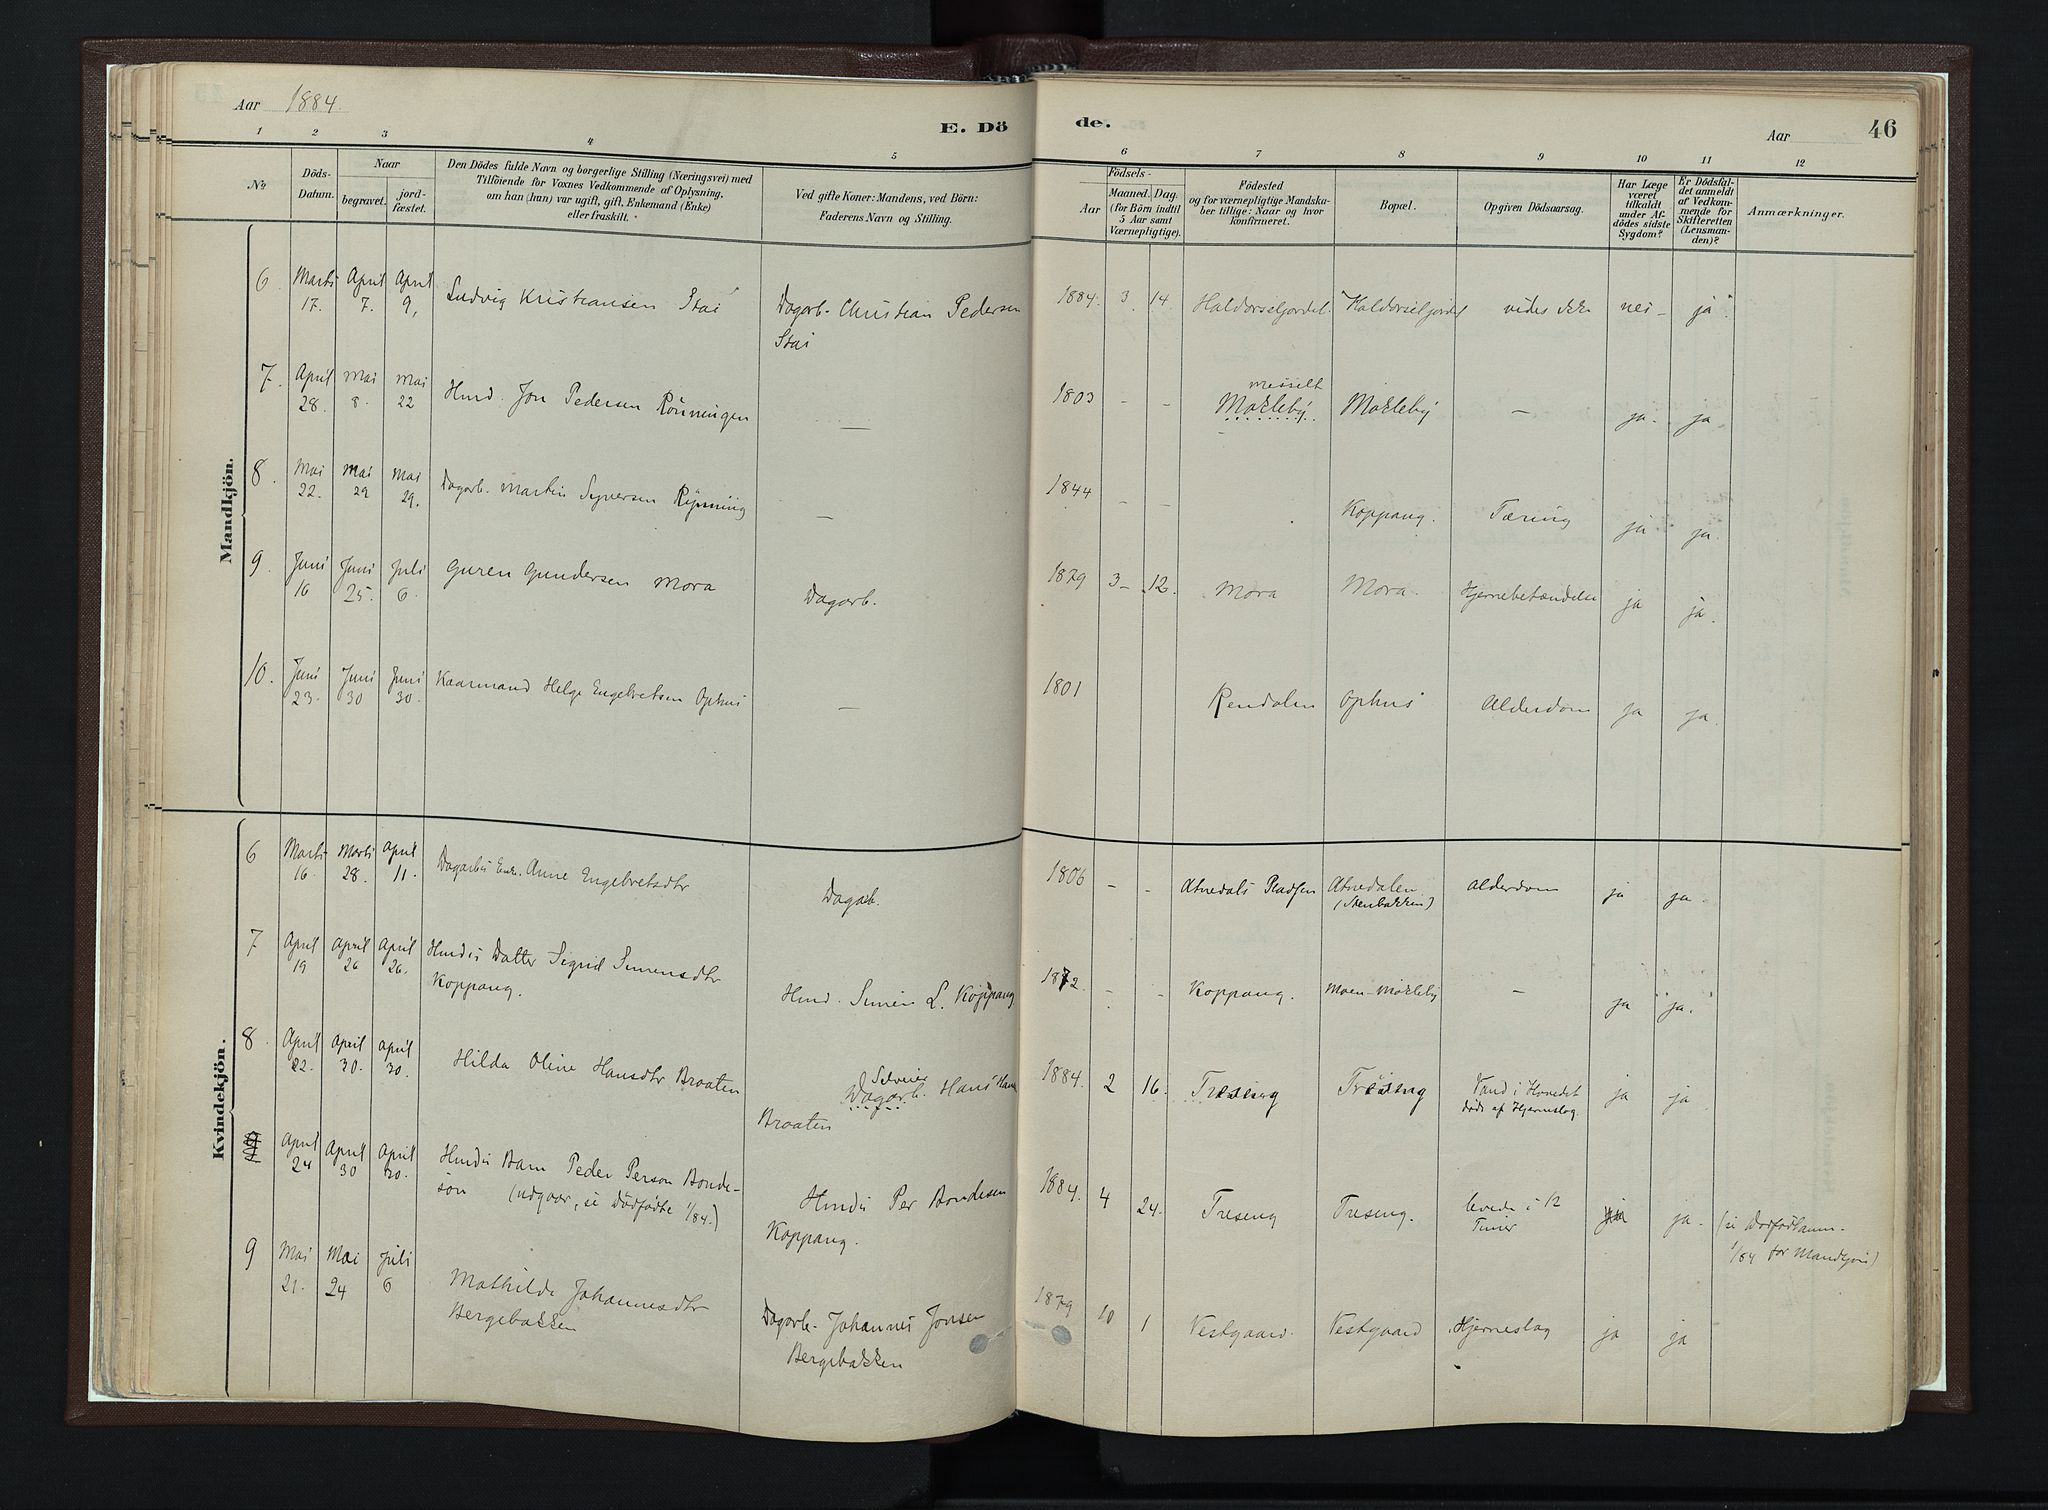 Aar 1884.
E. Dö
de.
Aar
46
1 2 3 4 5 6 7 8 9 10 11 12
№
Döds-
Datum.
Naar
begravet.
jord-
fæstet.
Den Dödes fulde Navn og borgerlige Stilling (Næringsvei) med
Tilföiende for Voxnes Vedkommende af Oplysning,
om han (hun) var ugift, gift, Enkemand (Enke)
eller fraskilt.
Ved gifte Koner: Mandens, ved Börn:
Faderens Navn og Stilling.
Födsels-
Aar
Maaned. Dag.
(for Börn indtil
5 Aar samt
Værnepligtige).
Födested
og for værnepligtige Mandska-
ber tillige: Naar og hvor
konfirmeret.
Bopæl.
Opgiven Dödsaarsag.
Har Læge
været
tilkaldt
under Af-
dödes sidste
Sygdom?
Er Dödsfal-
det anmeldt
af Vedkom-
mende for
Skifteretten
(Lensman-
den)?
Anmærkninger.
Mandkjön.
6. Marts 17. April 7. April 9, Ludvig Kristiansen Stai Dagarb. Christian Pedersen
Stai
1884. 3 14 Haldorseljordet. Haldorseljordet vides ikke nei - ja.
7. April 28. Mai 8. Mai 22 Hmd. Jon Pedersen Rönningen —
1803 - - Messelt
Mokleby. Mokleby — ja. ja
8. Mai 22. Mai 29 Mai 29. Dagarb. Martin Syversen Rönning —
1844 - - Koppang. Tæring ja ja.
9. Juni 16 Juni 25. Juli 6. Guren Gundersen Mora Dagarb.
1879 3- 12. Mora Mora Hjernebetændelse ja ja.
10. Juni 23. Juni 30 Juni 30. Kaarmand Helge Engebretsen Ophus —
1801 Rendalen Ophus Alderdom ja ja.
Kvindekjön.
6 Marts 16. Marts 28. April 11. Dagarbs Enk. Anne Engebretsdtr Dagarb.
1806 - - Atnedals Atnedalen
(Stenbakken) Alderdom ja ja.
7 April 19 April 26 April 26. Hmds Datter Sigrid Simensdtr
Koppang.
Hmd. Simen L. Koppang
1872 - - Koppang. Moen-Mokleby — ja ja.
8. April 22. April 30. April 30. Hilda Oline Hansdtr Braaten
Selveier
Dagarb. Hans
Braaten
1884. 2 16. Treseng Treseng Vand i Hovedet
døde af Hjerneslag. ja ja
April 24 April 30 April 30. Hmds Barn Peder Person Bonde-
søn (udgaar, se Dödfödte 1/84.)
Hmds Per Bondesen
Koppang.
1884. 4 24. Treseng Treseng. levede i 12
Timer ja.
1/84 for Mandkjön)
9 Mai 21. Mai 24 Juli 6 Mathilde Johannesdtr
Bergebakken
Dagarb. Johannes Jonsen
Bergebakken
1879 10 1 Vestgaard. Vestgaard Hjerneslag ja ja